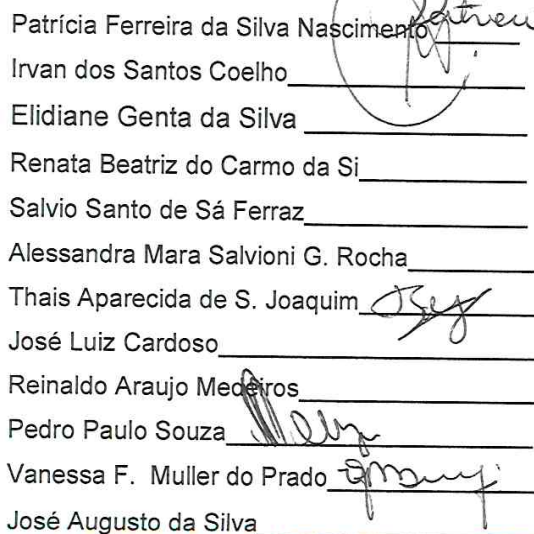 Patrícia Ferreira da Silva Nascimento
Irvan dos Santos Coelho
Elidiane Genta da Silva
Renata Beatriz do Carmo da Si
Salvio Santo de Sá Ferraz
Alessandra Mara Salvioni G. Rocha
Thais Aparecida de S. Joaquim
José Luiz Cardoso
Reinaldo Araujo Medeiros
Pedro Paulo Souza
Vanessa F. Muller do Prado
José Augusto da Silva